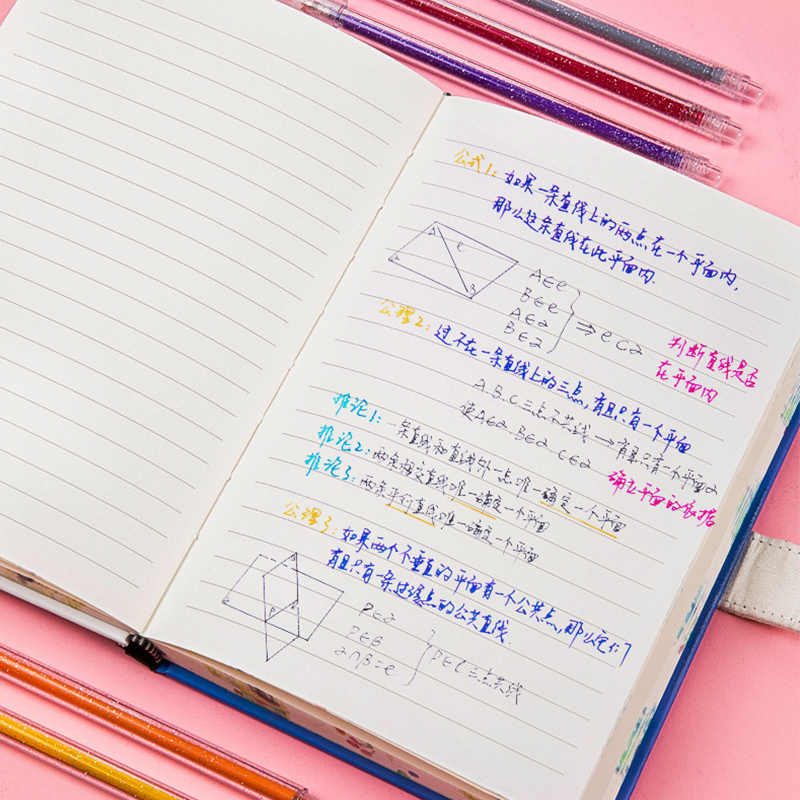 公式1: 如果一条直线上的两点在一个平面内,
那么这条直线在此平面内.
A
e
B
A∈e
B∈e
A∈2
B∈2
⇒ e⊂2
判断直线是否
在平面内
公理2: 过不在一条直线上的三点,有且只有一个平面
A.B.C三点不共线→有且只有一个平面2
使A∈2.B∈2 C∈2
确定平面的依据
推论1: 一条直线和直线外一点唯一确定一个平面
推论2: 两条相交直线唯一确定一个平面
推论3: 两条平行直线唯一确定一个平面
公理3: 如果两个不垂直的平面有一个公共点,那么它们
有且只有一条过该点的公共直线.
P
P∈2
P∈B
2∩β=e
P∈l 三点共线